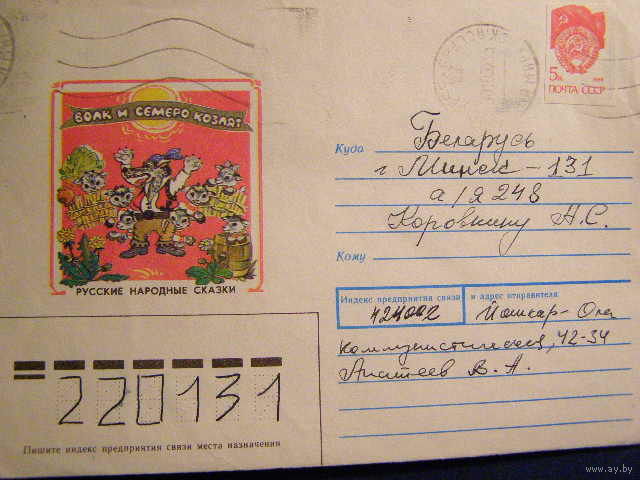 ВОЛК И СЕМЕРО КОЗЛЯТ
РУССКИЕ НАРОДНЫЕ СКАЗКИ
5к
ПОЧТА СССР
Куда Беларусь
г Минск-131
а/я 248
Коровкину А.С.
Кому
Индекс предприятия связи и адрес отправителя
424002 Йошкар-Ола
Коммунистическая, 42-34
В. А.
220131
Пишите индекс предприятия связи места назначения
www.ay.by